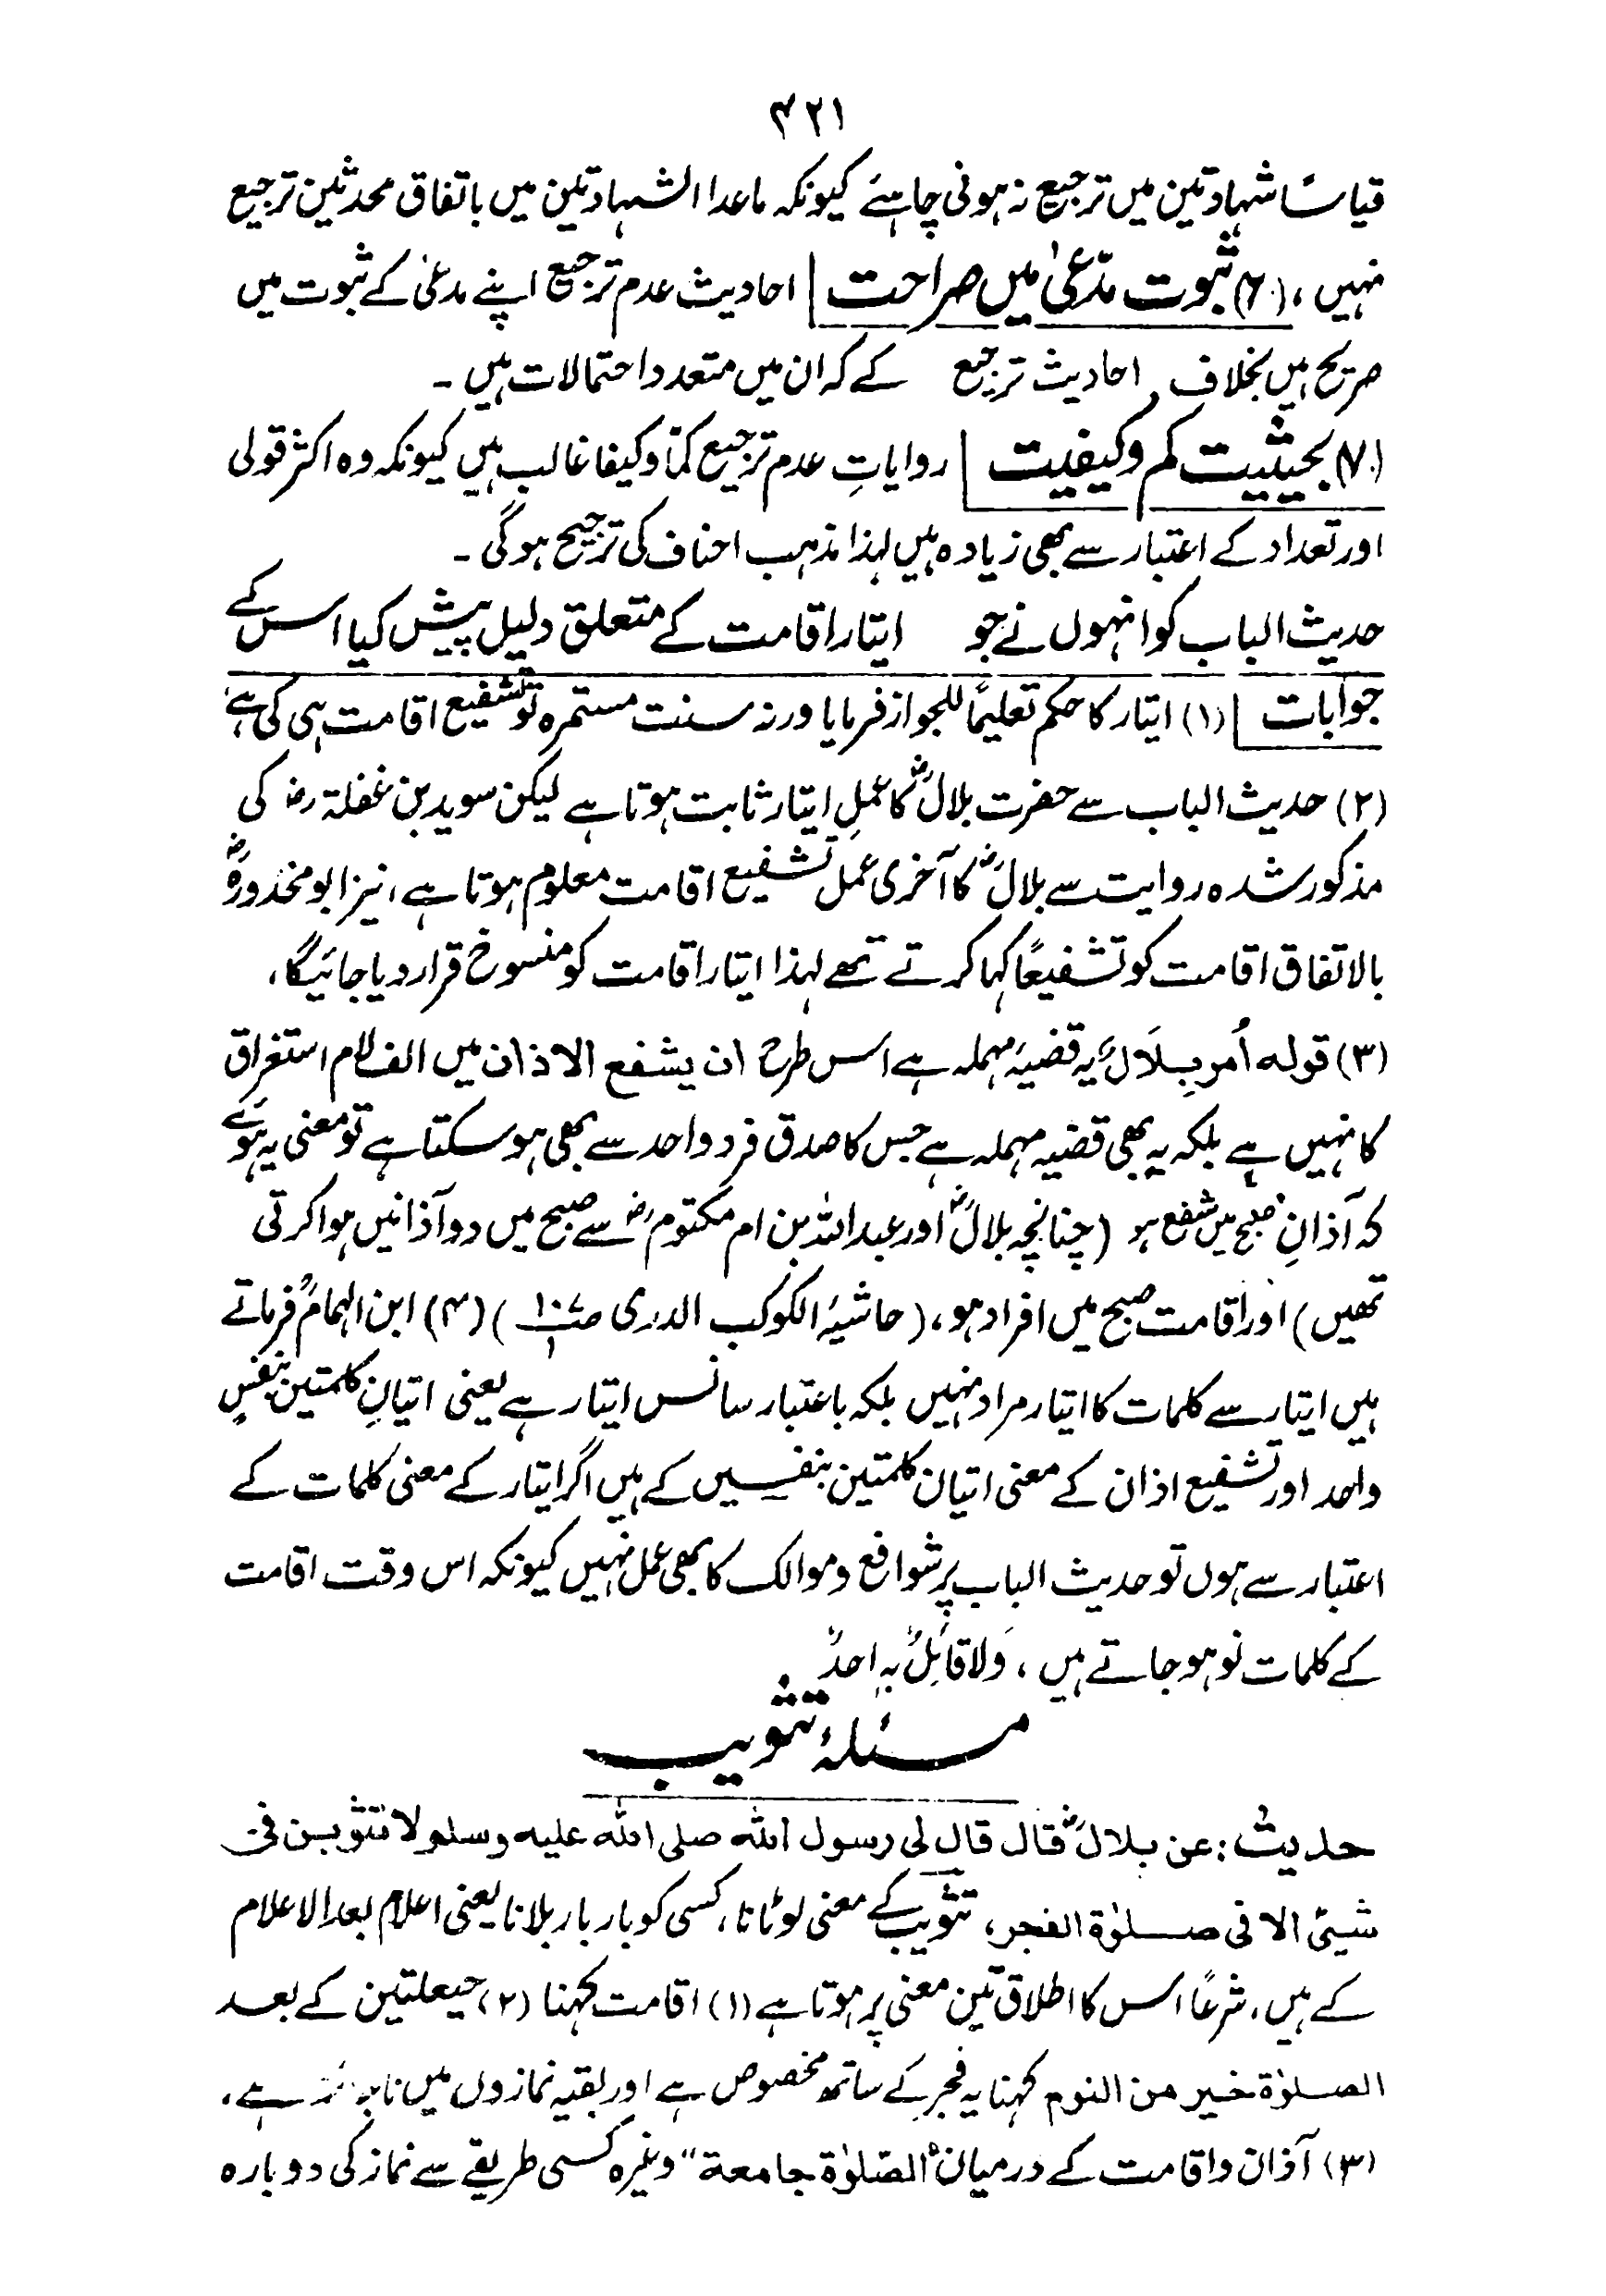 ۴۲۱
قیاسًا شہادتین میں ترجیع نہ ہونی چاہئے کیونکہ ماعدا الشہادتین میں باتفاق محدثین ترجیع
نہیں، (۶) ثبوت مدّعیٰ میں صراحت | احادیث عدم ترجیع اپنے مدعیٰ کے ثبوت میں
صریح ہیں بخلاف احادیث ترجیع کے کہ ان میں متعدد احتمالات ہیں ۔
(۷) بحیثیت کم وکیفیت | روایاتِ عدم ترجیع کمًّا وکیفا غالب ہیں کیونکہ وہ اکثر قولی
اور تعداد کے اعتبار سے بھی زیادہ ہیں لہذا مذہب احناف کی ترجیح ہوگی ۔
حدیث الباب کو انہوں نے جو ایتار اقامت کے متعلق دلیل پیش کیا اس کے
جوابات | (۱) ایتار کا حکم تعلیمًا للجواز فرمایا ورنہ سنت مستمرہ تو تشفیع اقامت ہی کی ہے،
(۲) حدیث الباب سے حضرت بلالؓ کا عملِ ایتار ثابت ہوتا ہے لیکن سوید بن غفلۃ رضؓ کی
مذکور شدہ روایت سے بلالؓ کا آخری عمل تشفیع اقامت معلوم ہوتا ہے، نیز ابو محذورہؓ
بالاتفاق اقامت کو تشفیعًا کہا کرتے تھے لہذا ایتار اقامت کو منسوخ قرار دیا جائیگا،
(۳) قولہ اُمر بِلَالٌ یہ قضیہ مہملہ ہے اس طرح ان یشفع الاذان میں الف لام استغراق
کا نہیں ہے بلکہ یہ بھی قضیہ مہملہ ہے جس کا صدق فرد واحد سے بھی ہوسکتا ہے تو معنی یہ ہوئے
کہ آذانِ صبح میں شفع ہو (چنانچہ بلالؓ اور عبداللہ بن ام مکتومؓ سے صبح میں دو آذانیں ہوا کرتی
تھیں) اور اقامت صبح میں افراد ہو، (حاشیۂ الکوکب الدری ص۱۰۷/۱) (۴) ابن الہمامؒ فرماتے
ہیں ایتار سے کلمات کا ایتار مراد نہیں بلکہ باعتبار سانس ایتار ہے یعنی اتیانِ کلمتین بنفسٍ
واحد اور تشفیع اذان کے معنی اتیان کلمتین بنفسین کے ہیں اگر ایتار کے معنی کلمات کے
اعتبار سے ہوں تو حدیث الباب پر شوافع وموالک کا بھی عمل نہیں کیونکہ اس وقت اقامت
کے کلمات نو ہوجاتے ہیں، وَلا قائلٌ بہِ احدٌ
مسئلۂ تثویب
حدیث : عن بلالؓ قال قال لی رسول اللہ صلی اللہ علیہ وسلم لا تثوبن فی
شیئ الا فی صلوٰۃ الفجر، تثویب کے معنی لوٹانا، کسی کو بار بار بلانا یعنی اعلام بعد الاعلام
کے ہیں، شرعًا اس کا اطلاق تین معنی پر ہوتا ہے (۱) اقامت کہنا (۲) حیعلتین کے بعد
الصلوٰۃ خیر من النوم کہنا یہ فجر کے ساتھ مخصوص ہے اور بقیہ نمازوں میں ہے،
(۳) آذان واقامت کے درمیان "الصّلوٰۃ جامعۃ" وغیرہ کسی طریقے سے نماز کی دوبارہ